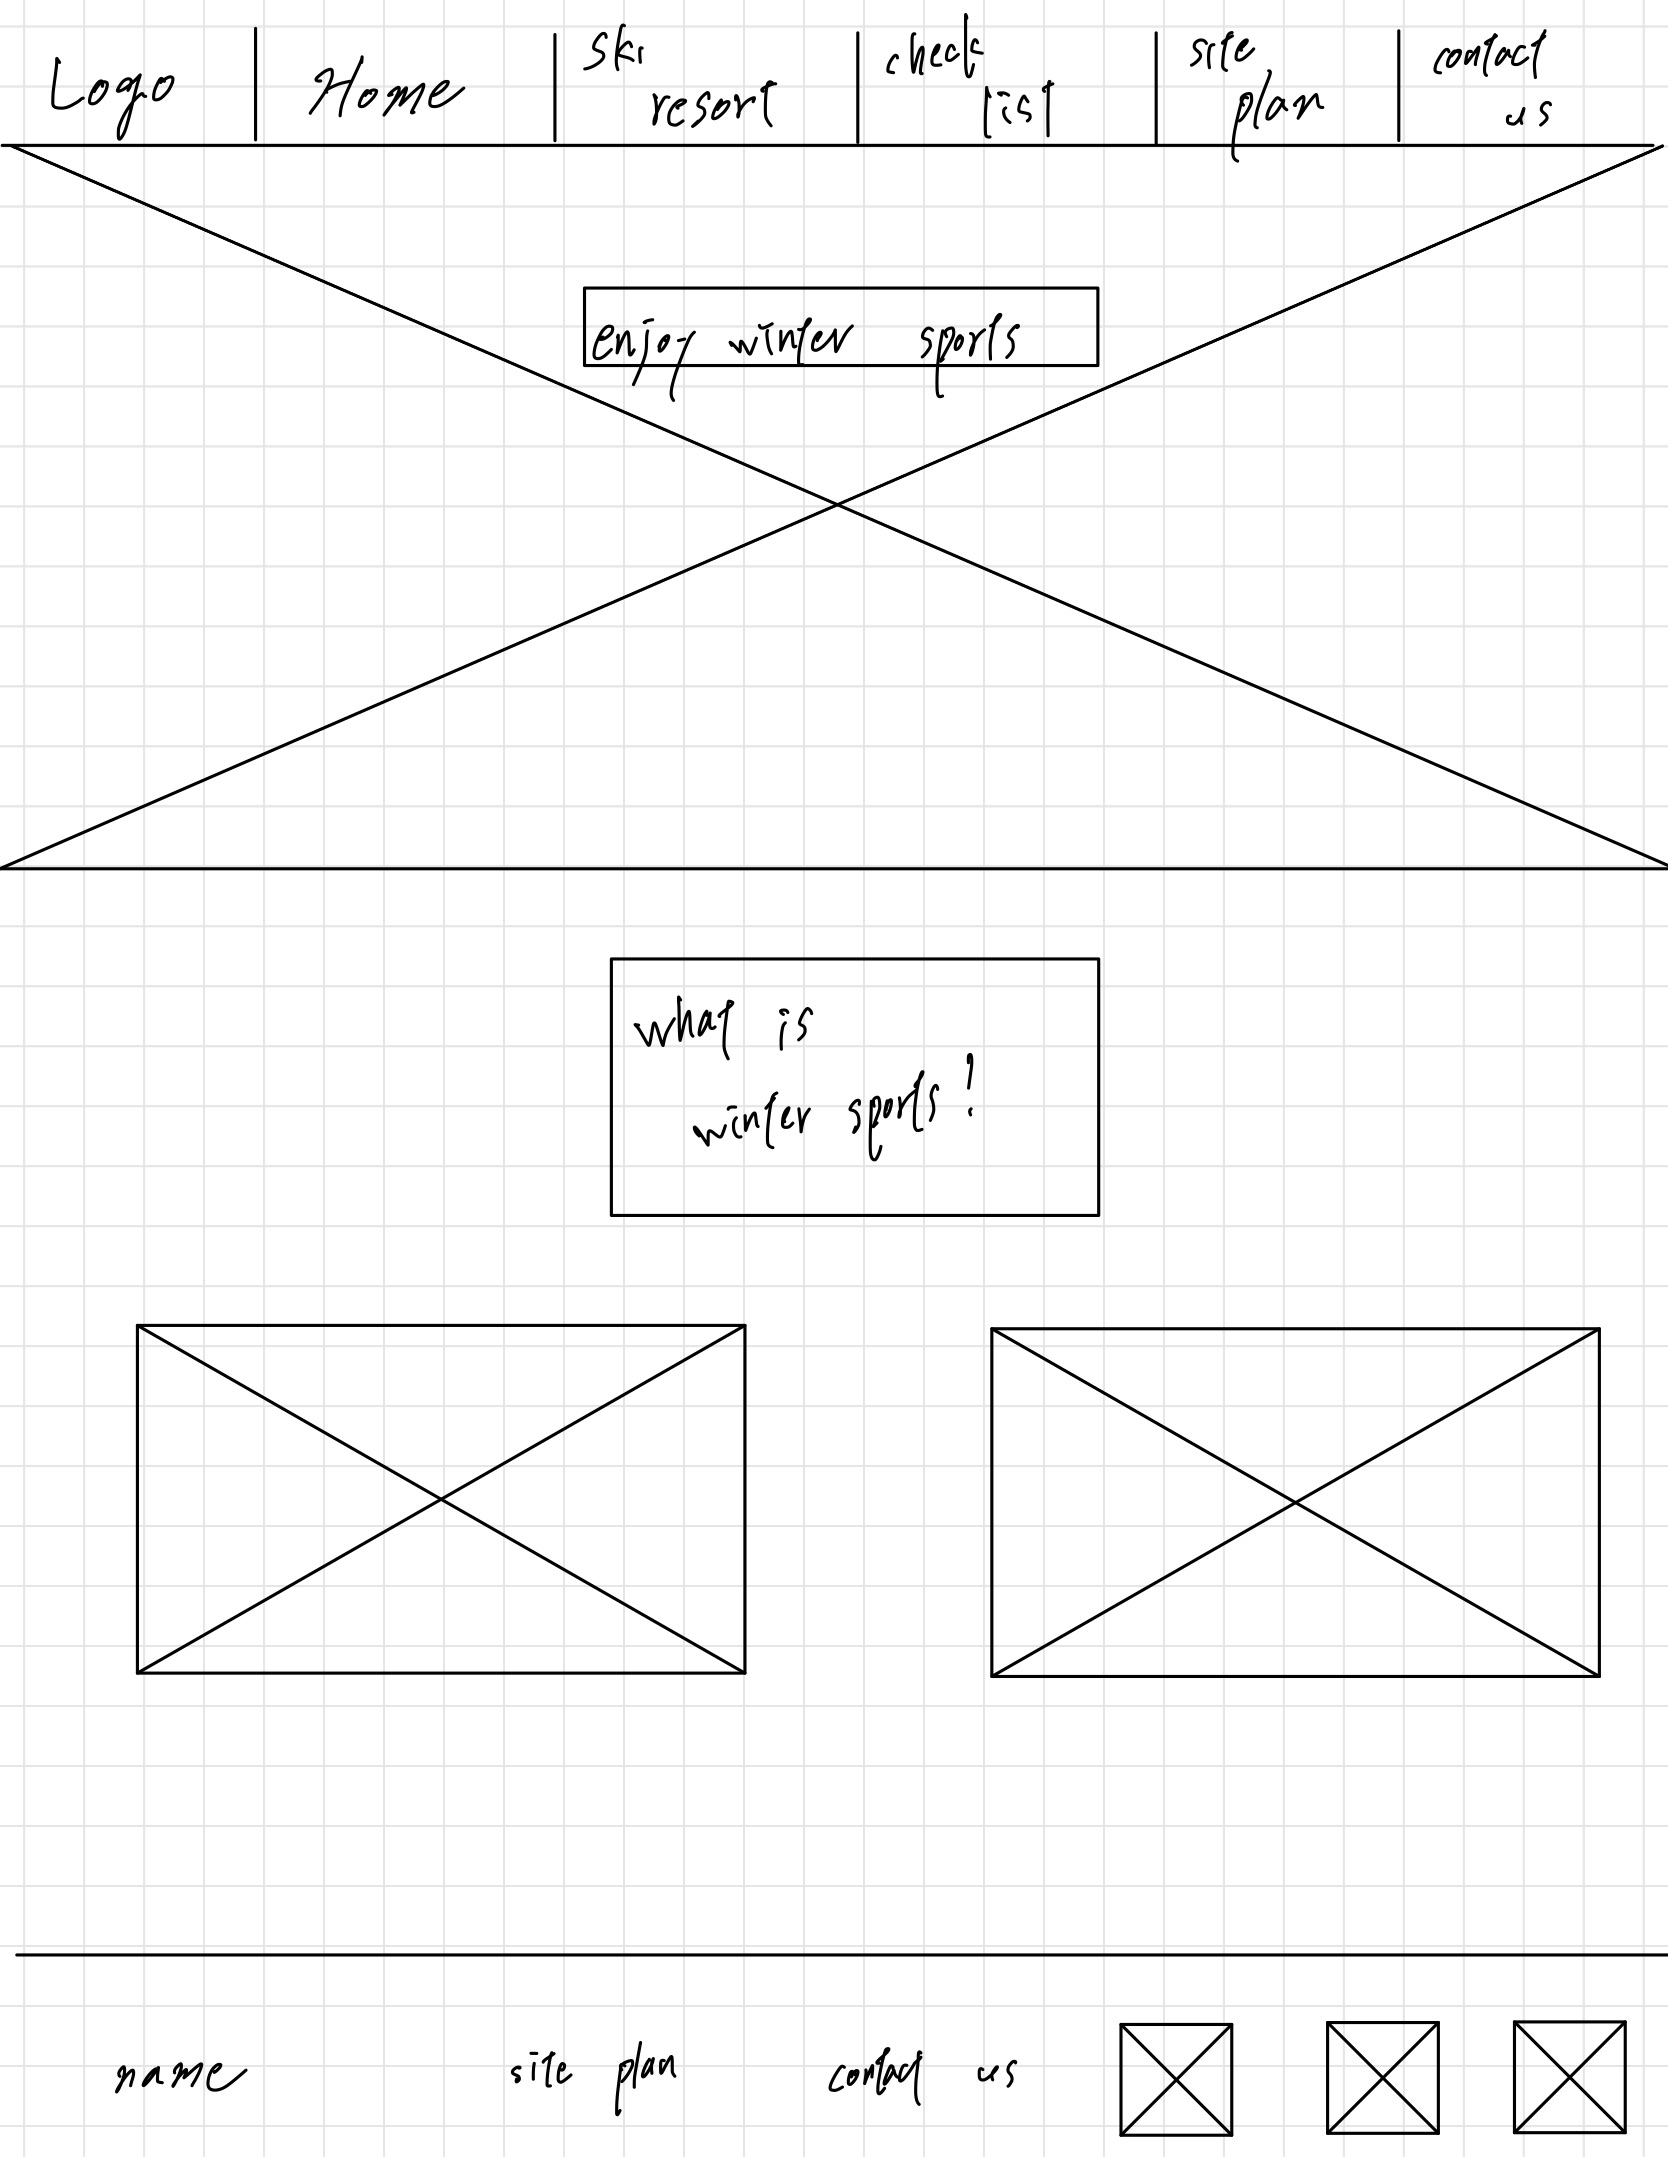 Logo
Home
Ski
resort
check
list
site
plan
contact
us
enjoy winter sports
what is
winter sports!
name
site plan
contact us